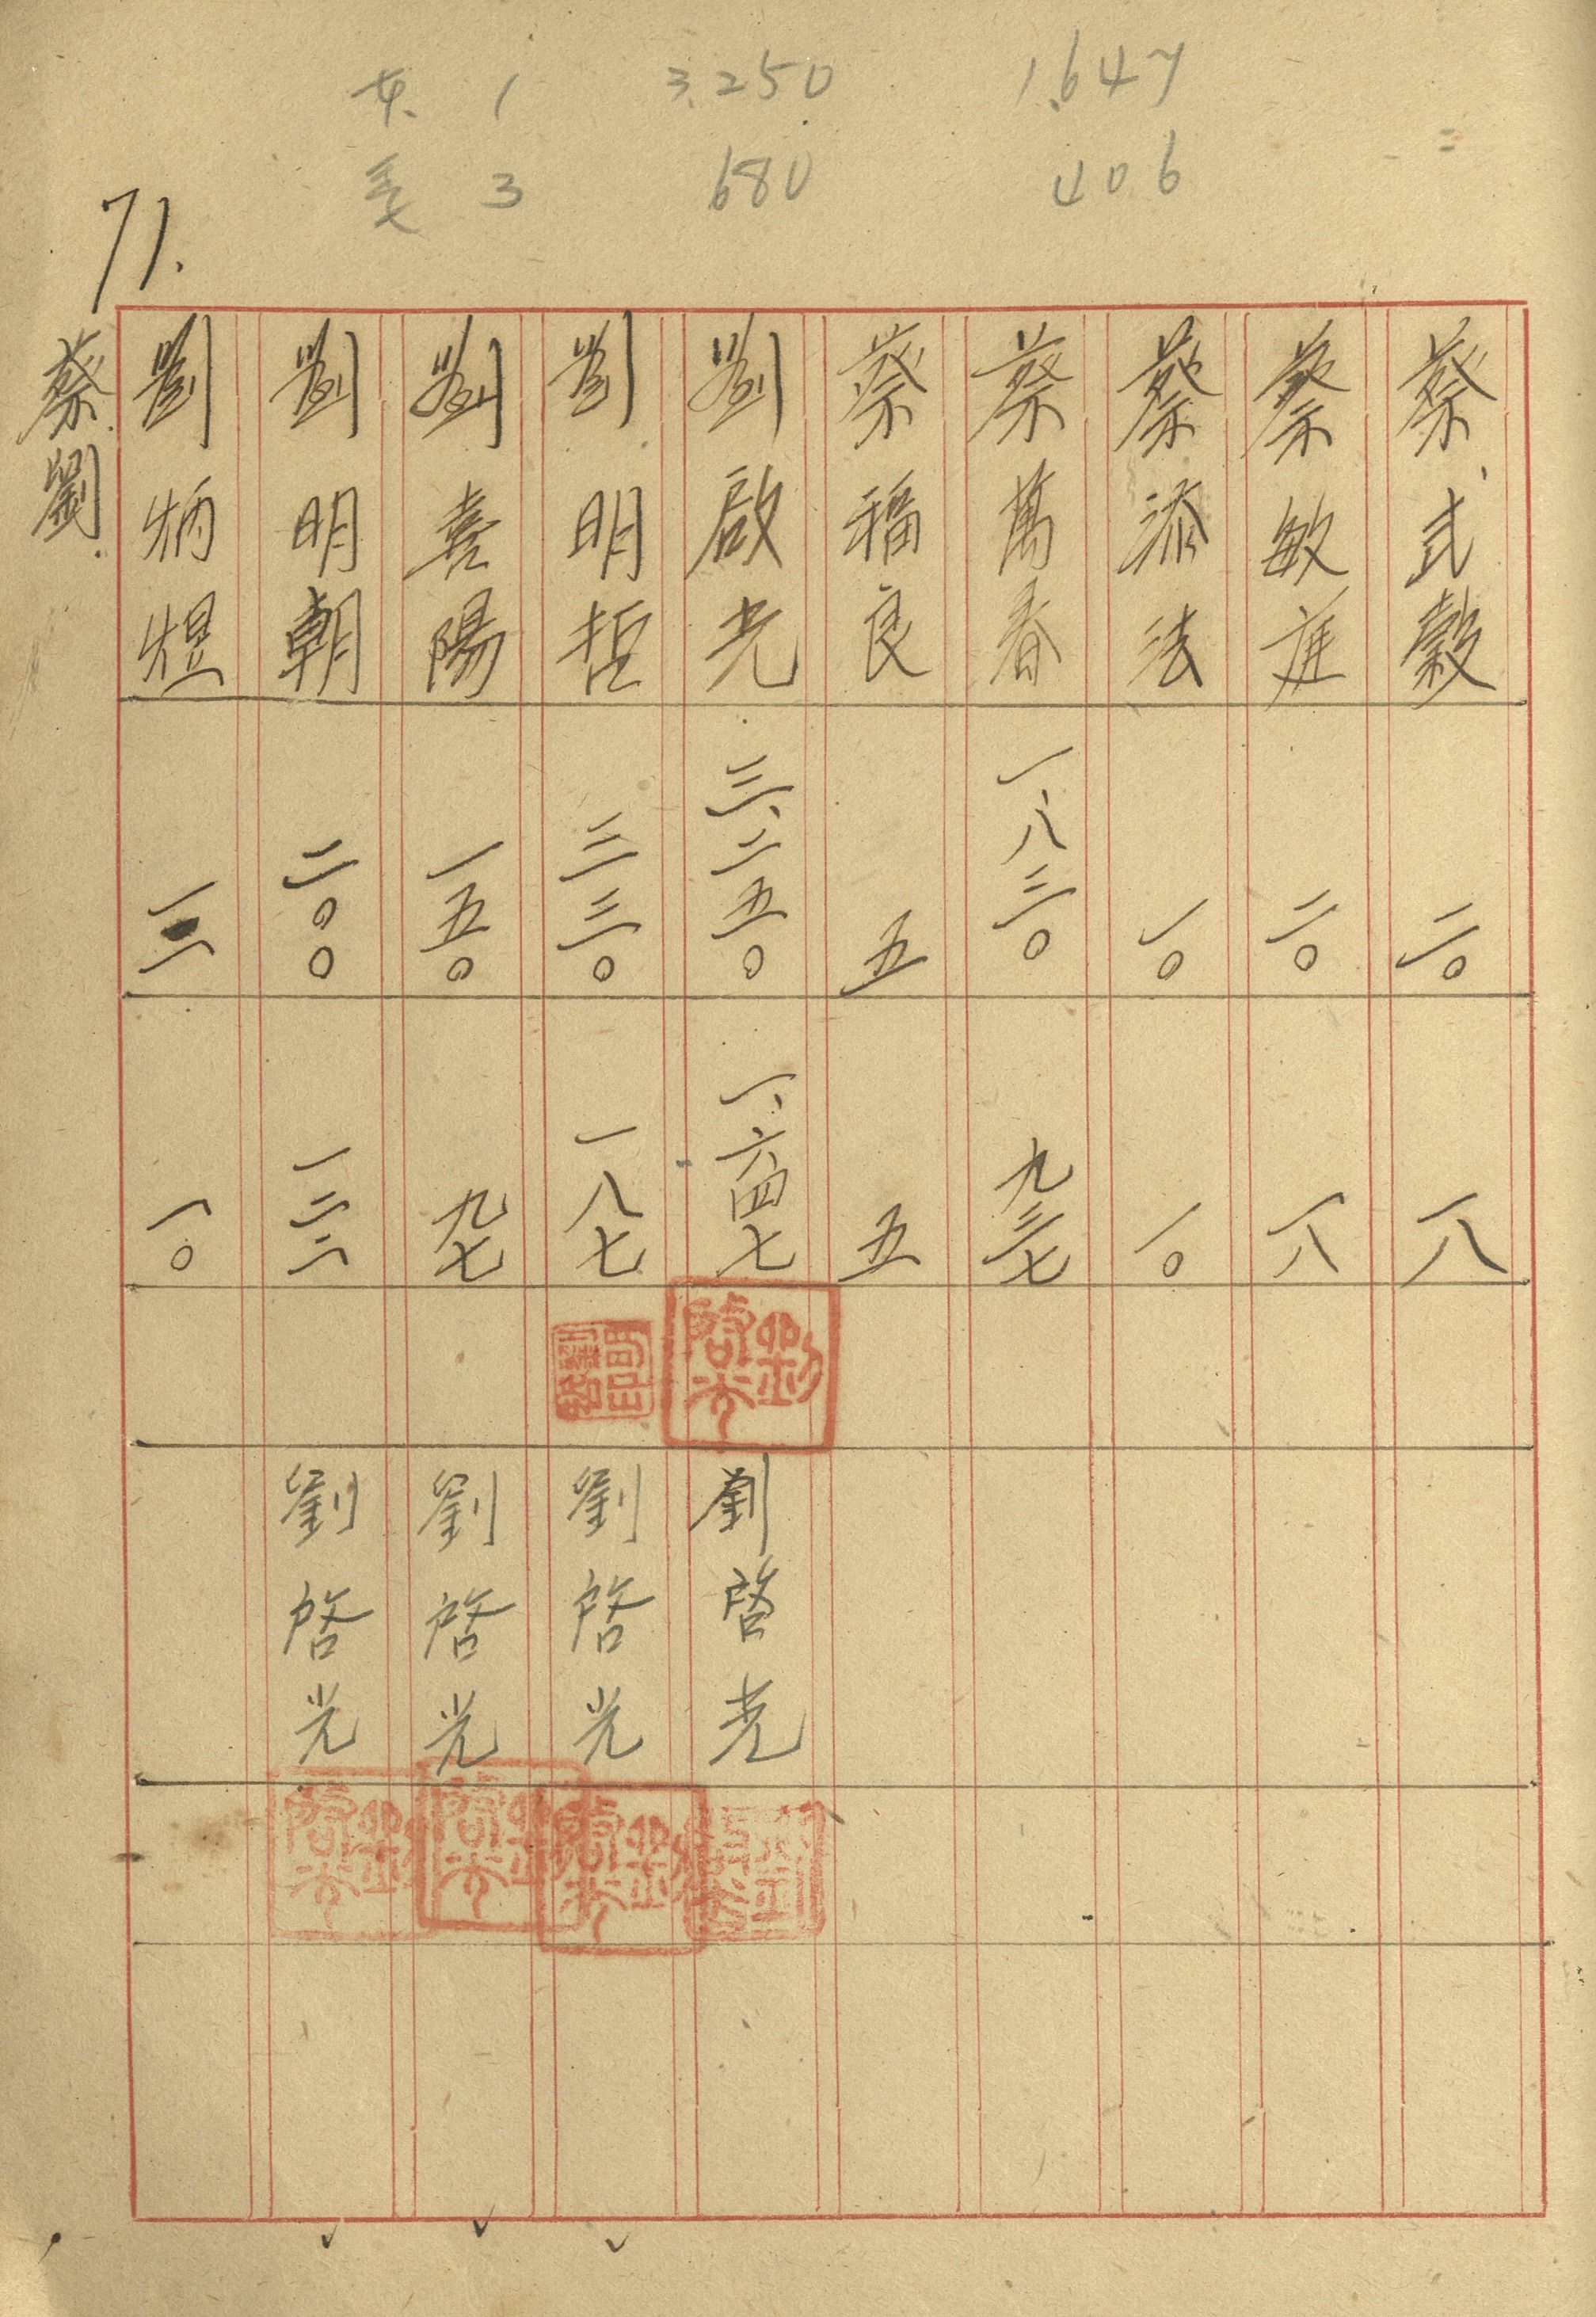 1 3.250 1.647
3 680 406
71.
蔡式穀 二〇 一八
蔡敏庭 二〇 一八
蔡添法 一〇 一〇
蔡萬春 一、八三〇 九三七
蔡福良 五 五
劉啟光 三、二五〇 一、六四七 劉啓光
劉明哲 三三〇 一八七 劉啓光
劉喜陽 一五〇 九七 劉啓光
劉明朝 二〇〇 一二二 劉啓光
劉炳煜 一〇
蔡劉